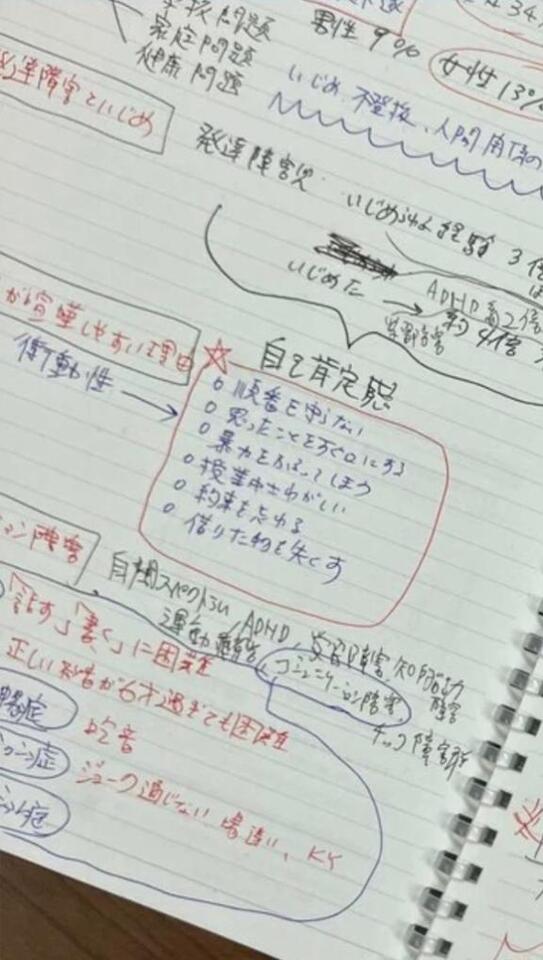 学校問題
家庭問題
健康問題
男性 9%
女性 13%
いじめ、不登校、人間関係の
発達障害といじめ
発達障害児
いじめられ経験 3倍
いじめた → ADHD 約2倍
学習障害 約4倍
が喧嘩しやすい理由
衝動性 →
☆ 自己肯定感
○ 順番を守らない
○ 思ったことをすぐ口にする
○ 暴力をふるってしまう
○ 授業中さわがしい
○ 約束を忘れる
○ 借りた物を失くす
ション障害
自閉スペクトラム, ADHD, 学習障害 知的能力障害
運動障害, コミュニケーション障害,
チック障害
「話す」「書く」に困難
正しい発音が6才過ぎても困難
吃音
ジョーク通じない 場違い、KY